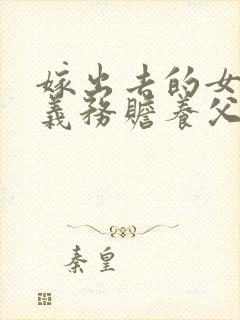 嫁出去的女
義務贍養父
秦皇